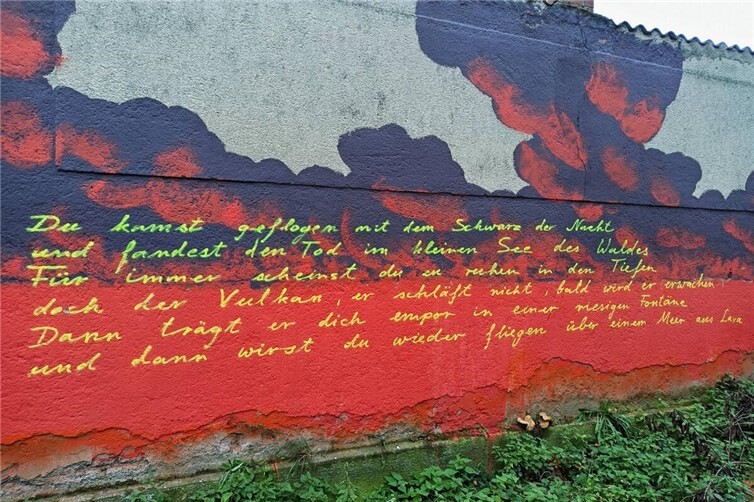 Du kamst geflogen mit dem Schwarz der Nacht
und fandest den Tod im kleinen See des Waldes
Für immer scheinst du zu ruhen in den Tiefen
doch der Vulkan, er schläft nicht, bald wird er erwachen,
Dann trägt er dich empor in einer riesigen Fontäne
und dann wirst du wieder fliegen über einem Meer aus Lava